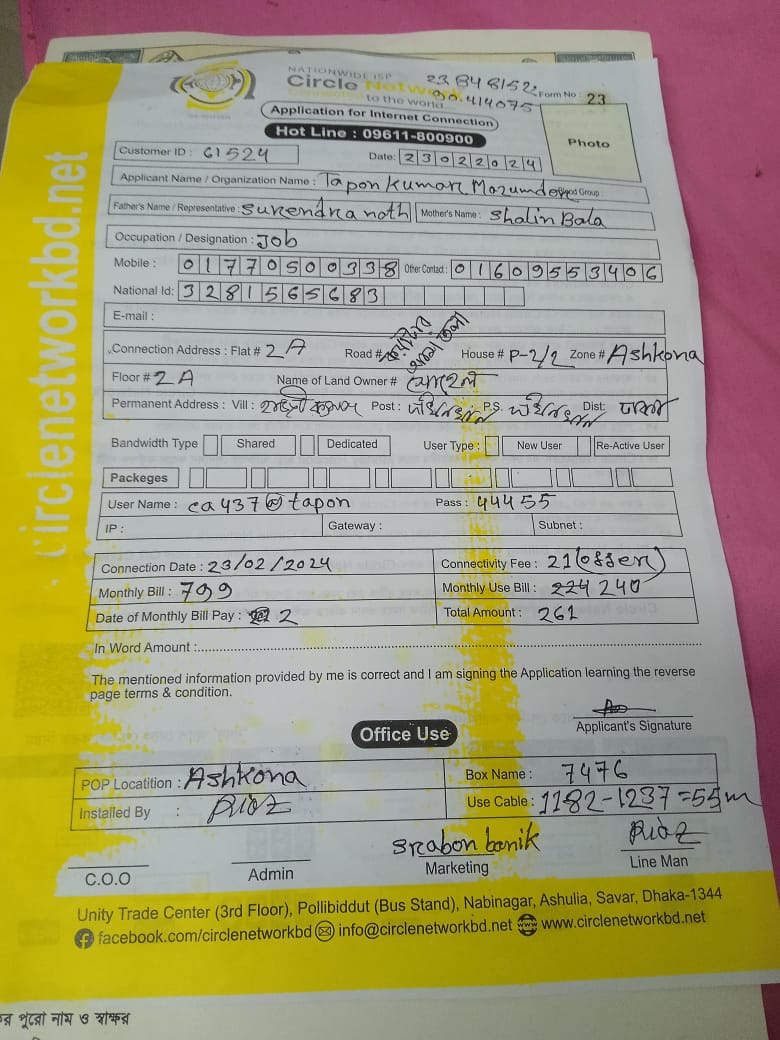 NATIONWIDE ISP
Circle Network
Connected to the world...
23.848152,
90.414075
Form No : 23
Application for Internet Connection
Hot Line : 09611-800900
Photo
Customer ID : 61524
Date: 23022024
Applicant Name / Organization Name : Tapon Kumar Mozumder Blood Group:
Father's Name / Representative : Surendra noth Mother's Name : Shalin Bala
Occupation / Designation : Job
Mobile : 01770500338 Other Contact : 01609553406
National Id: 3281565683
E-mail :
Connection Address : Flat # 2A Road # House # P-2/2 Zone # Ashkona
Floor # 2A Name of Land Owner #
Permanent Address : Vill : Post : P.S. Dist: ঢাকা
Bandwidth Type Shared Dedicated User Type : New User Re-Active User
Packeges
User Name : ca437@tapon Pass : 44455
IP : Gateway : Subnet :
Connection Date : 23/02/2024 Connectivity Fee : 21 (offer)
Monthly Bill : 799 Monthly Use Bill : 224 240
Date of Monthly Bill Pay : 2 Total Amount : 261
In Word Amount :
The mentioned information provided by me is correct and I am signing the Application learning the reverse
page terms & condition.
Applicant's Signature
Office Use
POP Locatition : Ashkona Box Name : 7476
Installed By : Riaz Use Cable : 1182-1237=55m
Srabon banik Riaz
C.O.O Admin Marketing Line Man
Unity Trade Center (3rd Floor), Pollibiddut (Bus Stand), Nabinagar, Ashulia, Savar, Dhaka-1344
facebook.com/circlenetworkbd info@circlenetworkbd.net www.circlenetworkbd.net
circlenetworkbd.net
পুরো নাম ও স্বাক্ষর